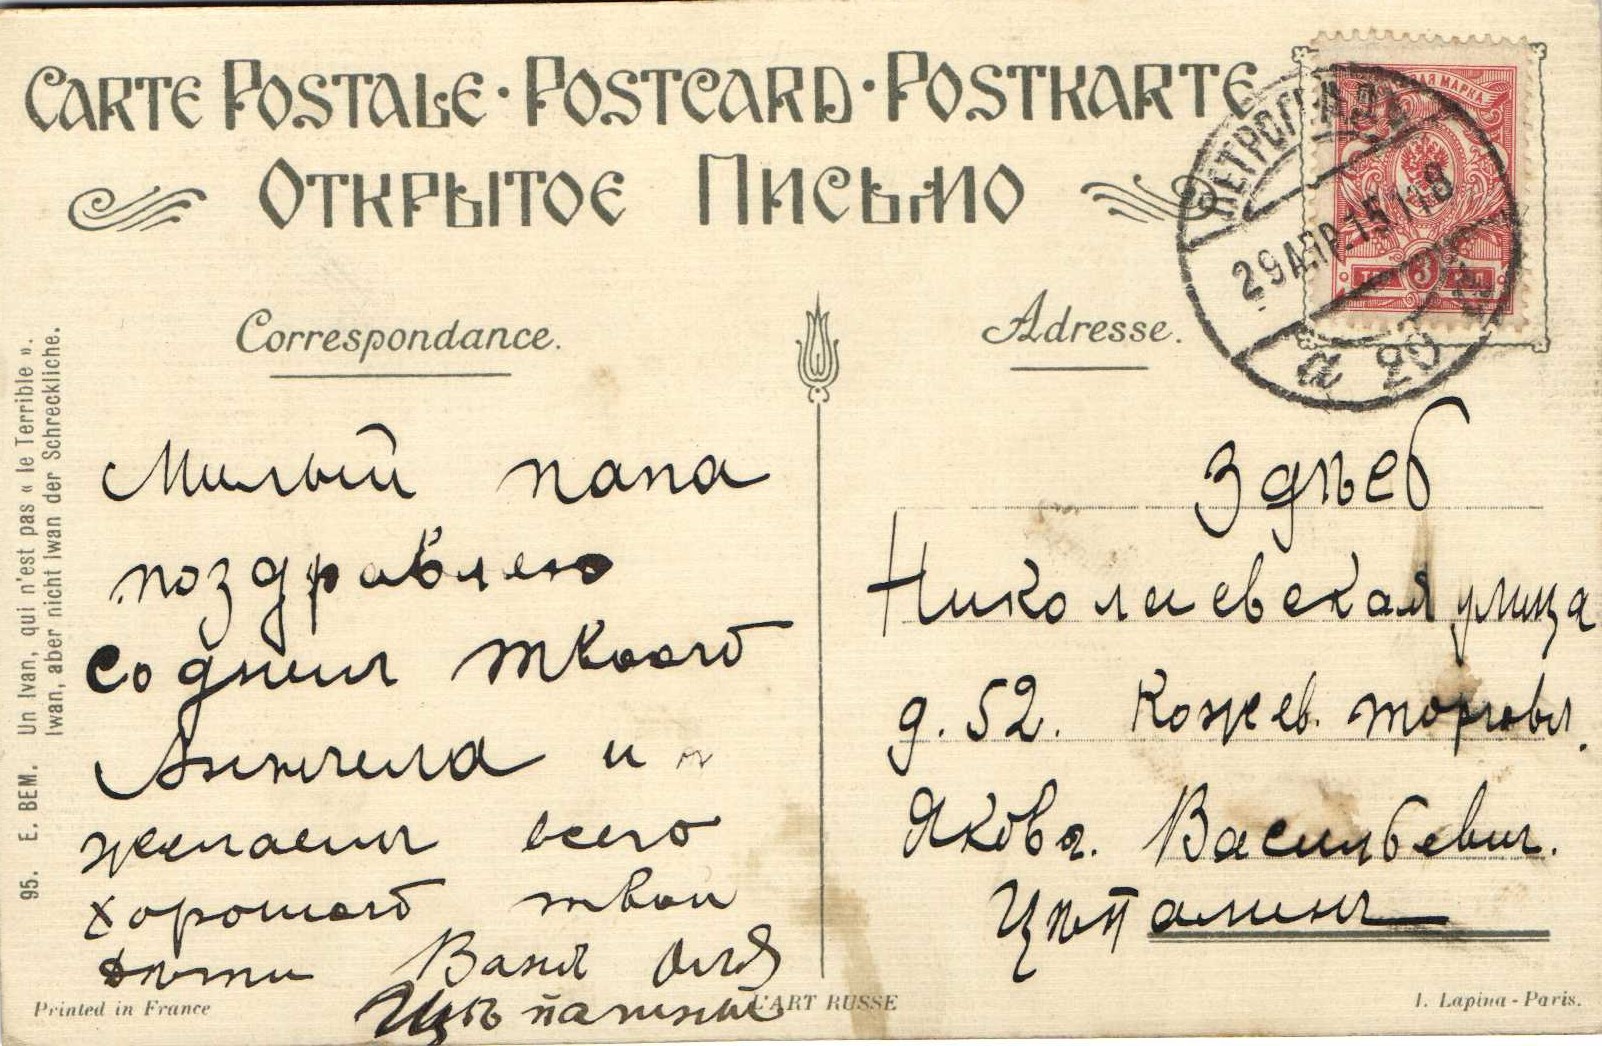 CARTE POSTALE · POSTCARD · POSTKARTE
ОТКРЫТОЕ ПИСЬМО
Correspondance.
Adresse.
ПЕТРОГРАДЪ
29 АПР. 15 11 8
20
МАРКА
3
95. E. BEM. Un Ivan, qui n'est pas « le Terrible ».
Iwan, aber nicht Iwan der Schreckliche.
Милый папа
поздравлею
со днем твоего
Аньгела и
желаем всего
хорошого твои
дѣти Ваня Оля
Здѣсь
Николаевская улица
д. 52. Кожев. торговл.
Якова. Васильевич.
Printed in France
L'ART RUSSE
I. Lapina - Paris.